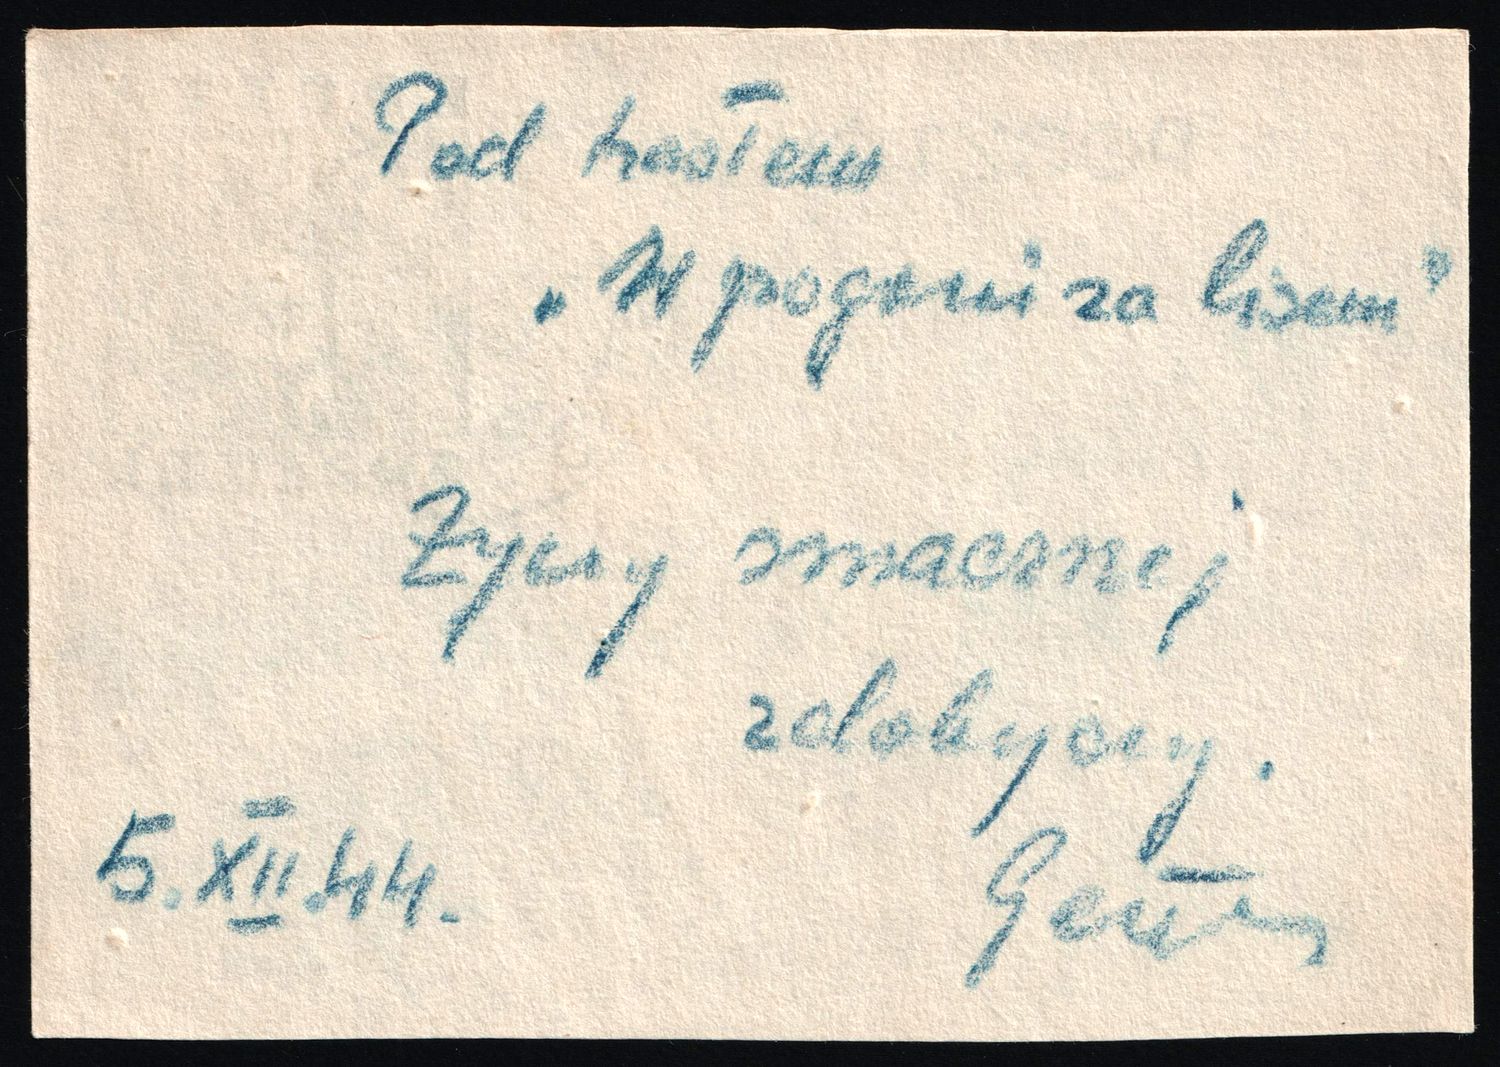 Pod hasłem
„W pogoni za lisem”
Życzy smacznej
zdobyczy.
5.XII.44.